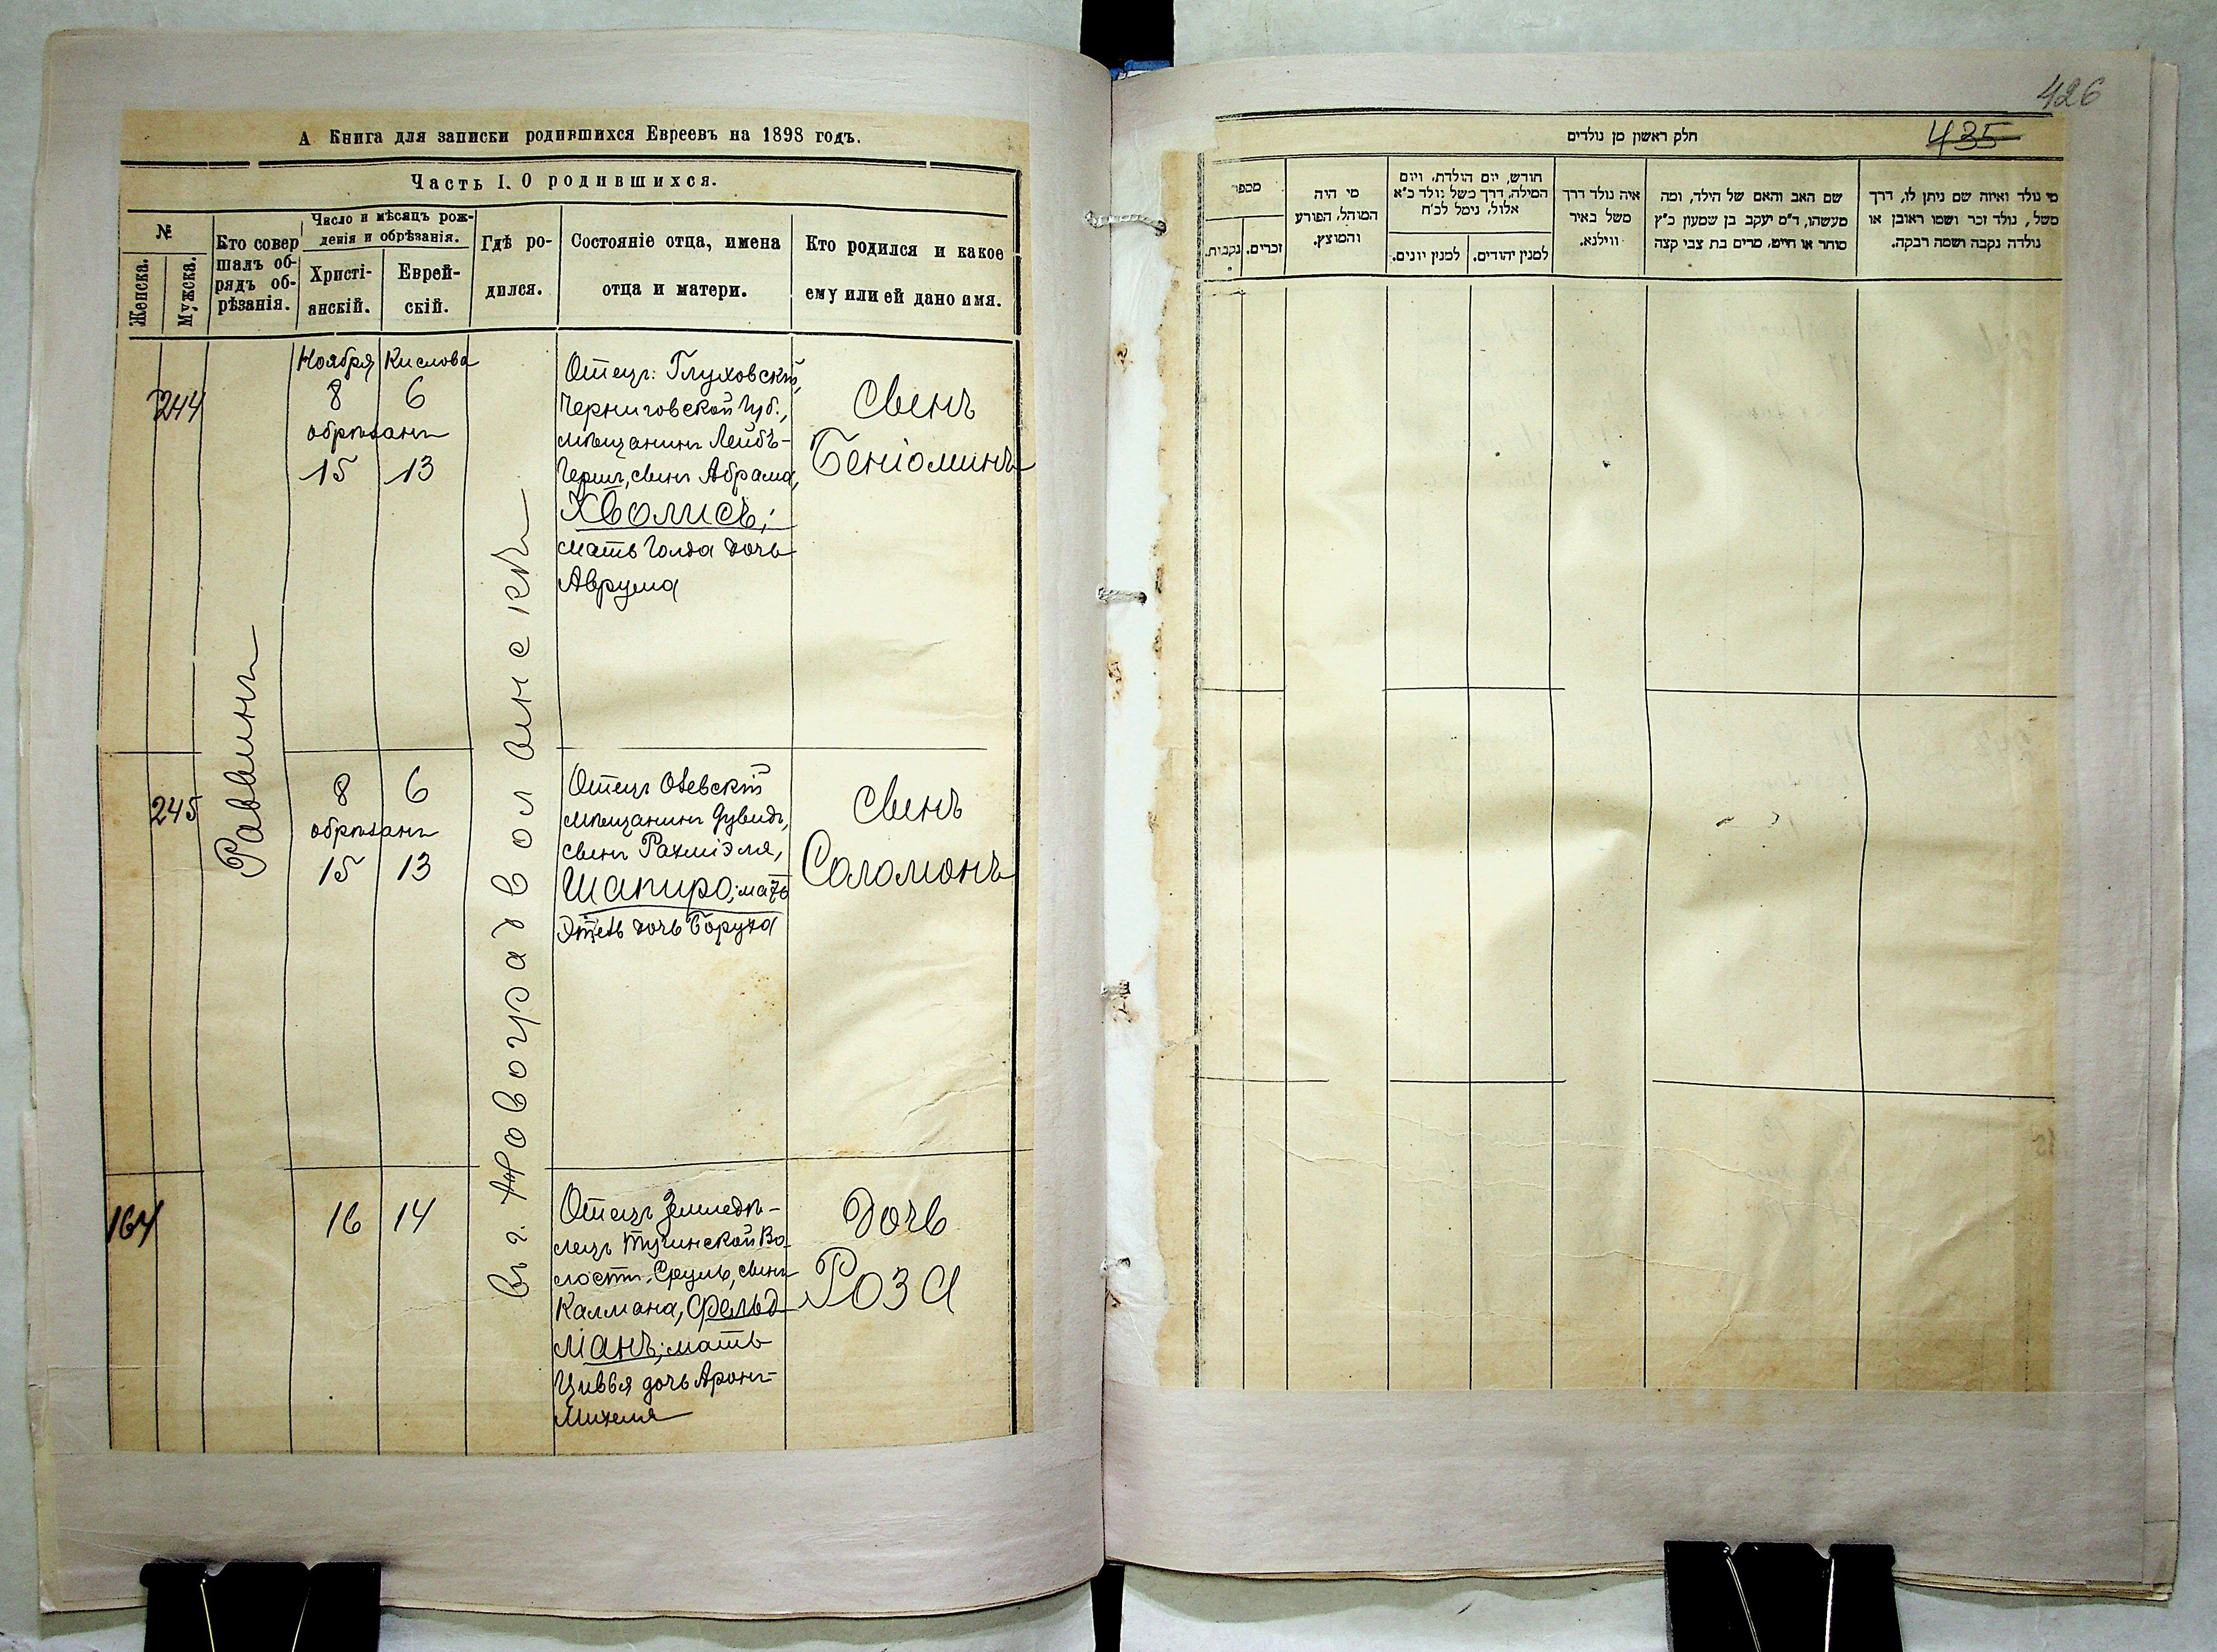 А Книга для записки родившихся Евреевъ на 1898 годъ.
Часть I. О родившихся.
№
Женска.
Мужска.
Кто совер
шалъ об-
рядъ об-
рѣзанія.
Число и мѣсяцъ рож-
денія и обрѣзанія.
Христі-
анскій.
Еврей-
скій.
Гдѣ ро-
дился.
Состояніе отца, имена
отца и матери.
Кто родился и какое
ему или ей дано имя.
Раввинъ
въ г. Новоградволынскѣ
244
Ноября Кислова
8 6
обрѣзанъ
15 13
Отецъ: Глуховскій,
Черниговской губ.,
мѣщанинъ Лейбъ-
Гершъ, сынъ Абрама,
Хволисъ;
мать Голда дочь
Аврума
сынъ
Беніоминъ
245
8 6
обрѣзанъ
15 13
Отецъ
мѣщанинъ Дувидъ,
сынъ Рахміэля,
Шапиро; мать
дочь Боруха
сынъ
Соломонъ
164
16 14
Отецъ Земледѣ-
лецъ Тучинской Во-
лости, Сруль, сынъ
Калмана, Фельд-
манъ; мать
Цивья дочь Аронъ-
Михеля
дочь
Роза
426
435
חלק ראשון מן נולדים
מי נולד ואיזה שם ניתן לו, דרך
משל, נולד זכר ושמו ראובן או
נולדה נקבה ושמה רבקה.
שם האב והאם של הילד, ומה
מעשהו, ד״ם יעקב בן שמעון כ״ץ
סוחר או חייט, מרים בת צבי קצה
איה נולד דרך
משל באיר
ווילנא.
חודש, יום הולדת, ויום
המילה, דרך משל נולד כ״א
אלול, נימל לכ״ח
למנין יהודים.
למנין יונים.
מי היה
המוהל, הפורע
והמוצץ.
מספר
זכרים.
נקבות.